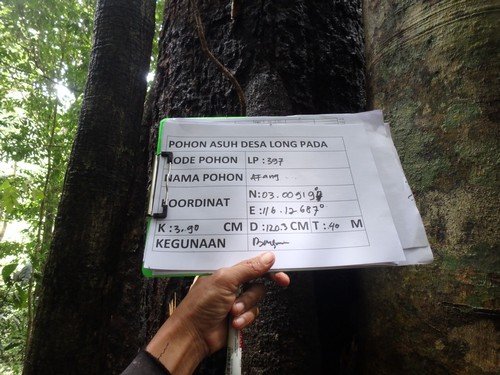 POHON ASUH DESA LONG PADA
KODE POHON LP : 397
NAMA POHON
KOORDINAT N : 03.00919°
E : 116.12687°
K : 3.90 CM D : 120.3 CM T : 40 M
KEGUNAAN